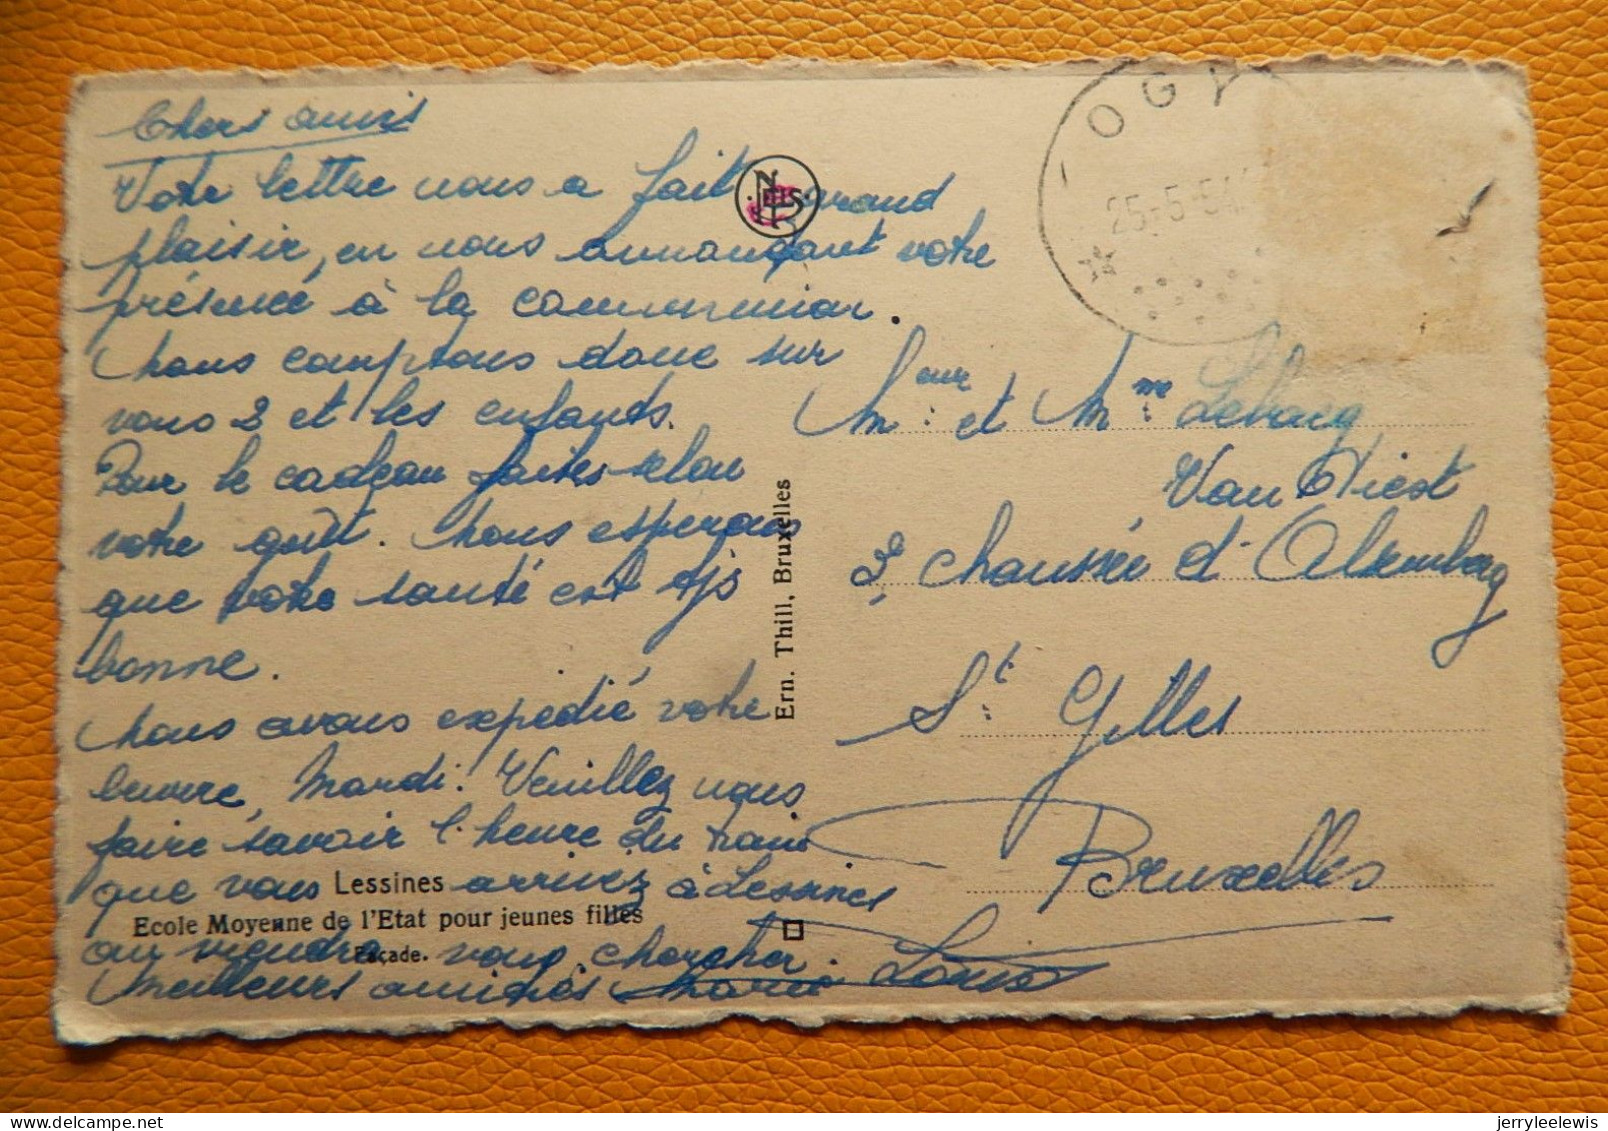 Chers amis
Votre lettre nous a fait grand
plaisir, en nous annonçant votre
présence à la communion.
Nous comptons donc sur
vous 2 et les enfants.
Pour le cadeau faites selon
votre goût. Nous espérons
que votre santé est tjs
bonne.
Nous avons expédié votre
beurre, Mardi. Veuillez nous
faire savoir l'heure du train
que vous arrivez à Lessines
on viendra vous chercher.
Meilleurs amitiés Marie Louis
Lessines
Ecole Moyenne de l'Etat pour jeunes filles
Façade.
NELS
Ern. Thill, Bruxelles
OGY
25-5-54
Meur et Mme
Van
Chaussée d'Alsemberg
St Gilles
Bruxelles
jerryleelewis